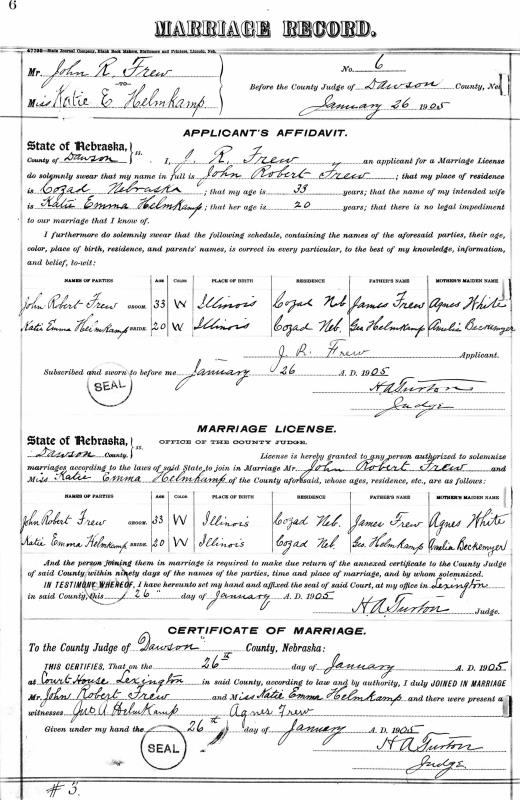 6
MARRIAGE RECORD.
47798—State Journal Company, Blank Book Makers, Stationers and Printers, Lincoln, Neb.
Mr. John R. Frew
—TO—
Miss Katie E Helmkamp
No. 6
Before the County Judge of Dawson County, Neb
January 26 1905
APPLICANT'S AFFIDAVIT.
State of Nebraska, } ss.
County of Dawson
I, J. R. Frew an applicant for a Marriage License
do solemnly swear that my name in full is John Robert Frew ; that my place of residence
is Cozad Nebraska ; that my age is 33 years; that the name of my intended wife
is Katie Emma Helmkamp ; that her age is 20 years; that there is no legal impediment
to our marriage that I know of.
I furthermore do solemnly swear that the following schedule, containing the names of the aforesaid parties, their age,
color, place of birth, residence, and parents' names, is correct in every particular, to the best of my knowledge, information,
and belief, to-wit:
NAMES OF PARTIES AGE COLOR PLACE OF BIRTH RESIDENCE FATHER'S NAME MOTHER'S MAIDEN NAME
John Robert Frew GROOM. 33 W Illinois Cozad Neb James Frew Agnes White
Katie Emma Helmkamp BRIDE. 20 W Illinois Cozad Neb. Geo Helmkamp Amelia Beckemyer
J. R. Frew Applicant.
Subscribed and sworn to before me January 26 A. D. 1905
SEAL
H A Turton
Judge
MARRIAGE LICENSE.
State of Nebraska, } ss.
OFFICE OF THE COUNTY JUDGE.
Dawson County.
License is hereby granted to any person authorized to solemnize
marriages according to the laws of said State to join in Marriage Mr. John Robert Frew and
Miss Katie Emma Helmkamp of the County aforesaid, whose ages, residence, etc., are as follows:
NAMES OF PARTIES AGE COLOR PLACE OF BIRTH RESIDENCE FATHER'S NAME MOTHER'S MAIDEN NAME
John Robert Frew GROOM. 33 W Illinois Cozad Neb. James Frew Agnes White
Katie Emma Helmkamp BRIDE. 20 W Illinois Cozad Neb. Geo. Helmkamp Amelia Beckemyer
And the person joining them in marriage is required to make due return of the annexed certificate to the County Judge
of said County within ninety days of the names of the parties, time and place of marriage, and by whom solemnized.
IN TESTIMONY WHEREOF, I have hereunto set my hand and affixed the seal of said Court, at my office in Lexington
in said County, this 26" day of January A. D. 1905
H A Turton Judge.
CERTIFICATE OF MARRIAGE.
To the County Judge of Dawson County, Nebraska:
THIS CERTIFIES, That on the 26th day of January A. D. 1905
at Court House Lexington in said County, according to law and by authority, I duly JOINED IN MARRIAGE
Mr. John Robert Frew and Miss Katie Emma Helmkamp and there were present as
witnesses Jno A Helmkamp Agnes Frew
Given under my hand the 26th day of January A. D. 1905
SEAL
H A Turton
Judge
# 3.